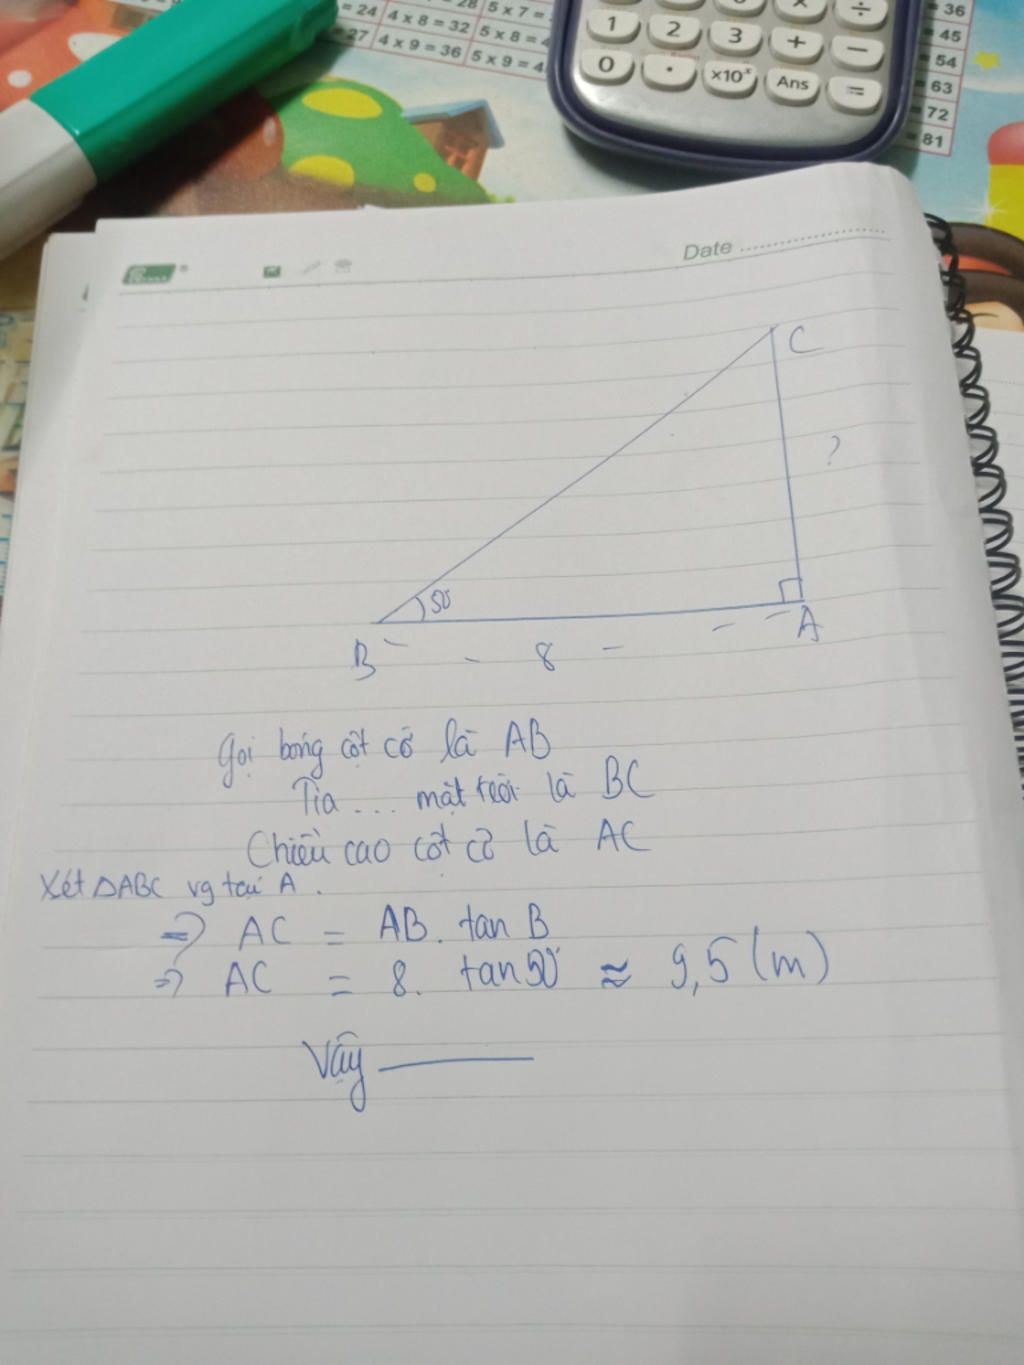 = 24
4 x 8 = 32
5 x 7 =
27
4 x 9 = 36
5 x 8 = 4
5 x 9 = 4
1 2 3 + −
0 · ×10ˣ Ans =
× ÷
= 36
= 45
= 54
= 63
= 72
= 81
Date
C
?
50°
B 8 A
Gọi bóng cột cờ là AB
Tia ... mặt trời là BC
Chiều cao cột cờ là AC
Xét △ABC vg tại A.
=> AC = AB. tan B
=> AC = 8. tan50° ≈ 9,5 (m)
Vậy